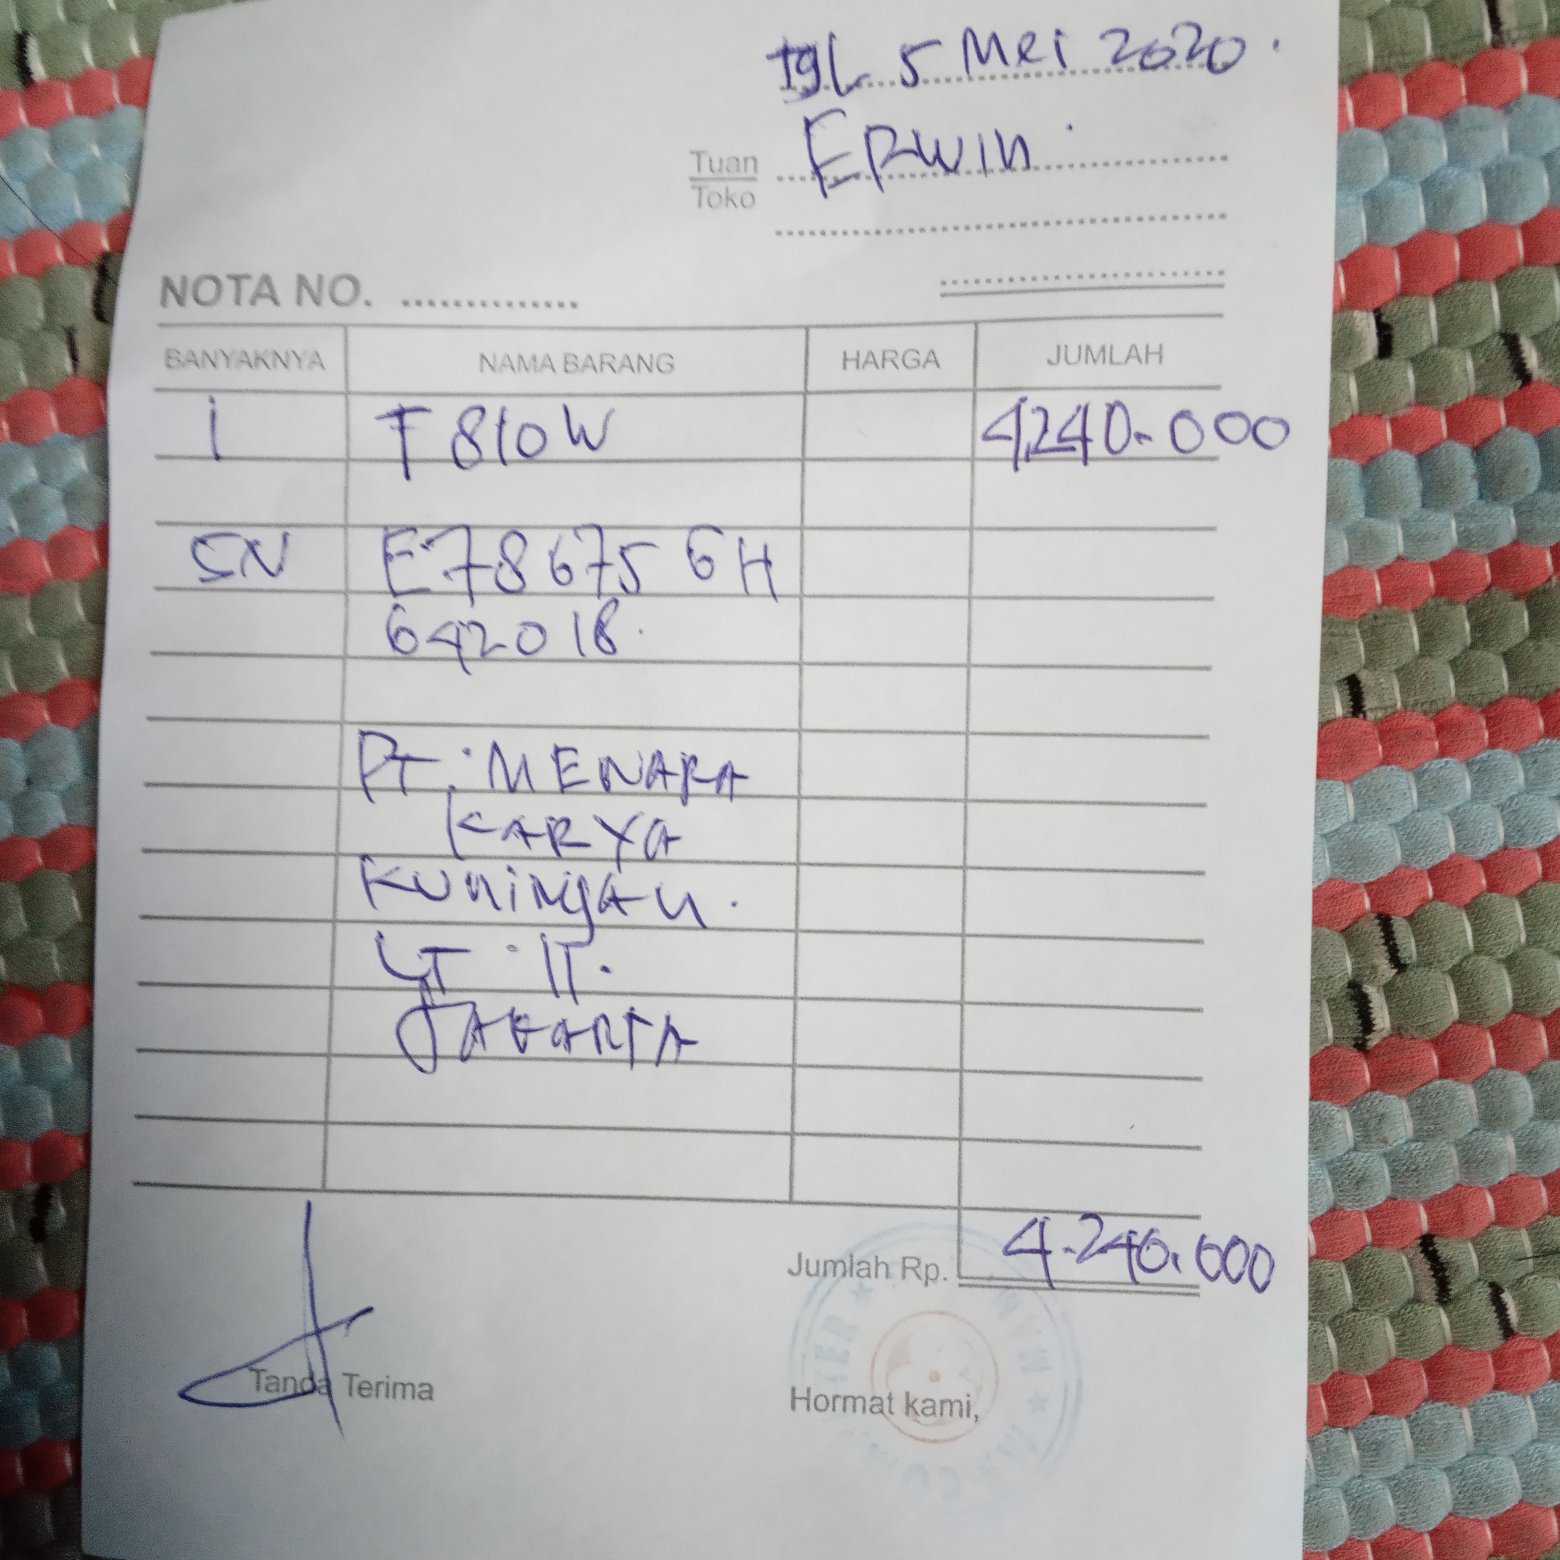 tgl 5 Mei 2020.
Tuan
Toko
ERWIN.
NOTA NO.
BANYAKNYA NAMA BARANG HARGA JUMLAH
1 T 810W 4,240.000
SN E78675 6H
642018.
PT. MENARA
KARYA
KUNINGAN.
LT. IT.
JAKARTA
Jumlah Rp. 4.240.000
Tanda Terima
Hormat kami,